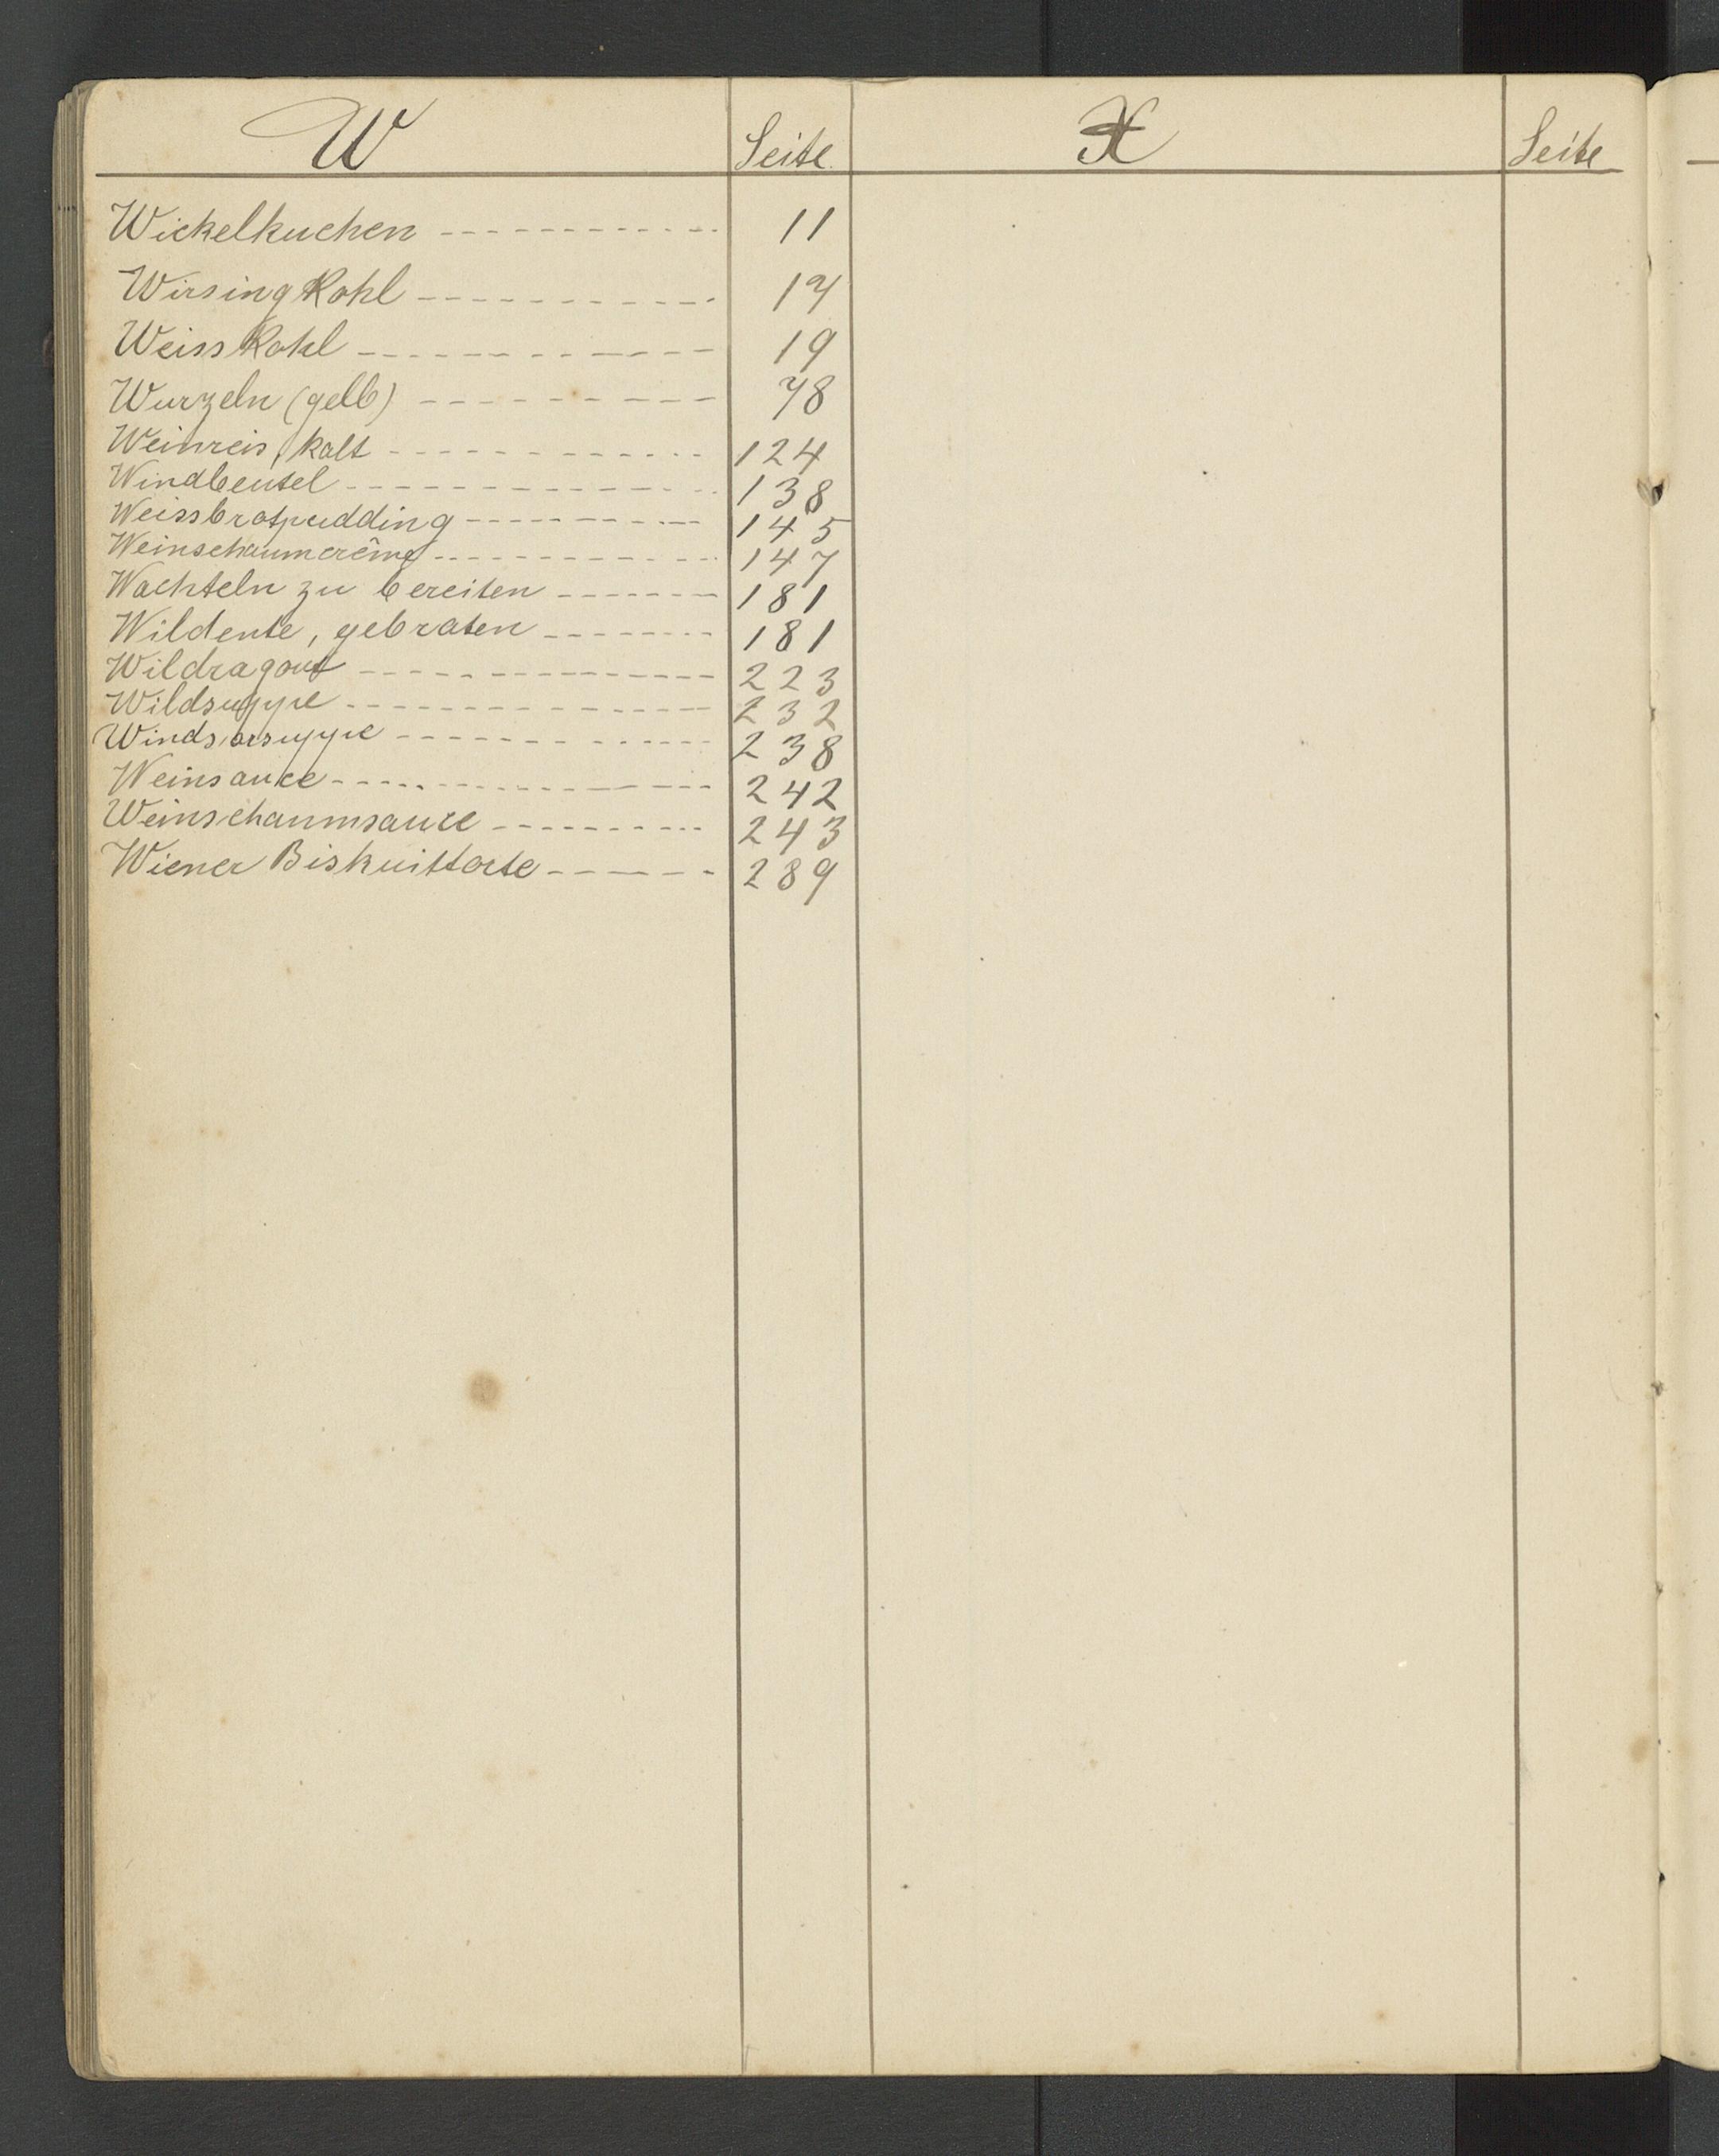 W Seite X Seite
Wickelkuchen ------------ 11
Wirsing Kohl ----------- 17
Weiss Kohl ----------- 19
Wurzeln (gelb) --------- 78
Weinreis, kalt ------------- 124
Windbeutel -------------- 138
Weissbrotpudding ---------- 145
Weinschaumcrême ----------- 147
Wachteln zu bereiten ------- 181
Wildente, gebraten -------- 181
Wildragout --------------- 223
Wildsuppe --------------- 232
Windsorsuppe -------------- 238
Weinsauce --------------- 242
Weinschaumsauce ---------- 243
Wiener Biskuittorte ------ 289